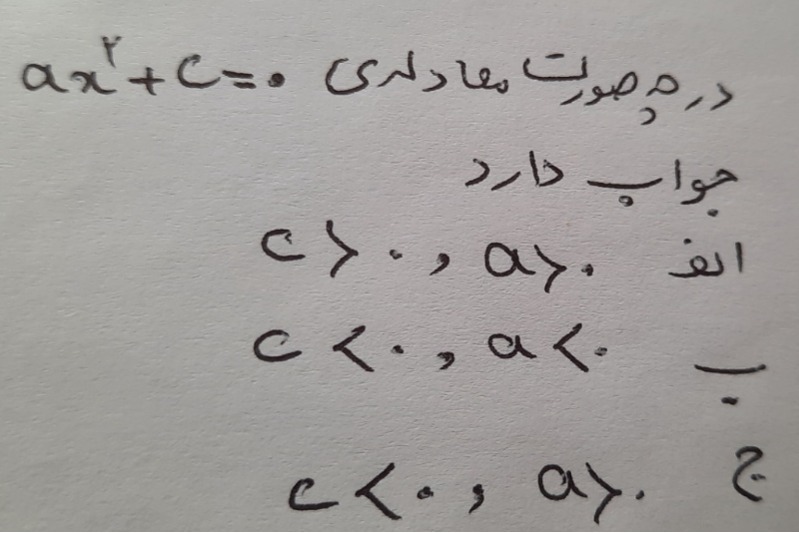 در چه صورت معادله‌ی ax²+c=۰
جواب دارد
الف a>۰ , c>۰
ب a<۰ , c<۰
ج a>۰ , c<۰